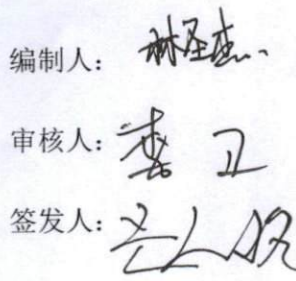 编制人：林圣杰
审核人：龚卫
签发人：